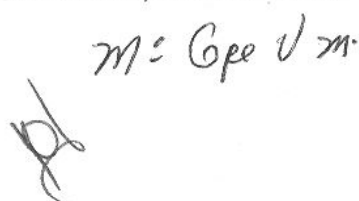 m: Gpe V m.